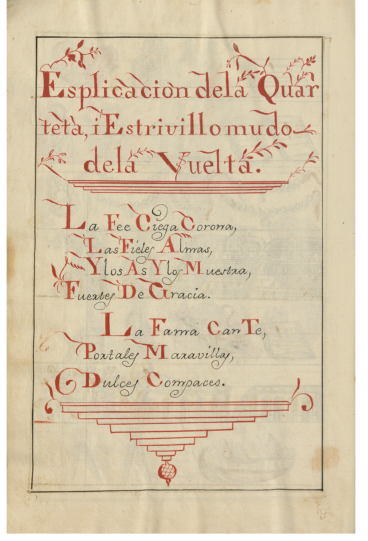 Esplicacion dela Quar
teta, i Estrivillo mudo
dela Vuelta.
La Fee Ciega Corona,
Las Fieles Almas,
Y los As Y los Muestra,
Fuentes De Gracia.
La Fama Cante,
Portales Maravillas,
Dulces Compaces.